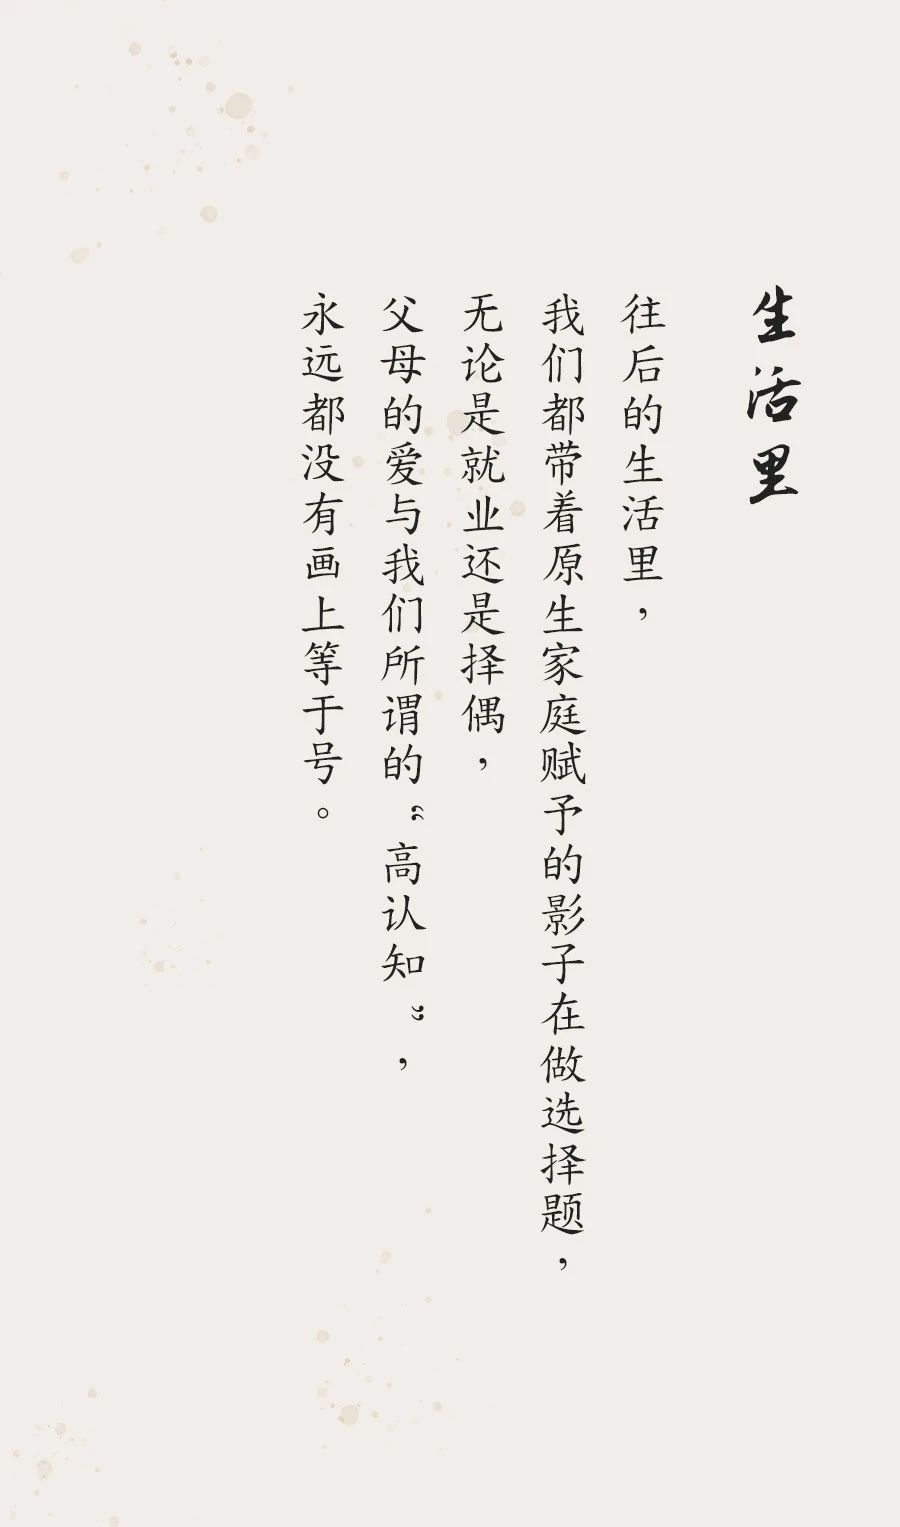 生活里
往后的生活里，
我们都带着原生家庭赋予的影子在做选择题，
无论是就业还是择偶，
父母的爱与我们所谓的“高认知”，
永远都没有画上等于号。